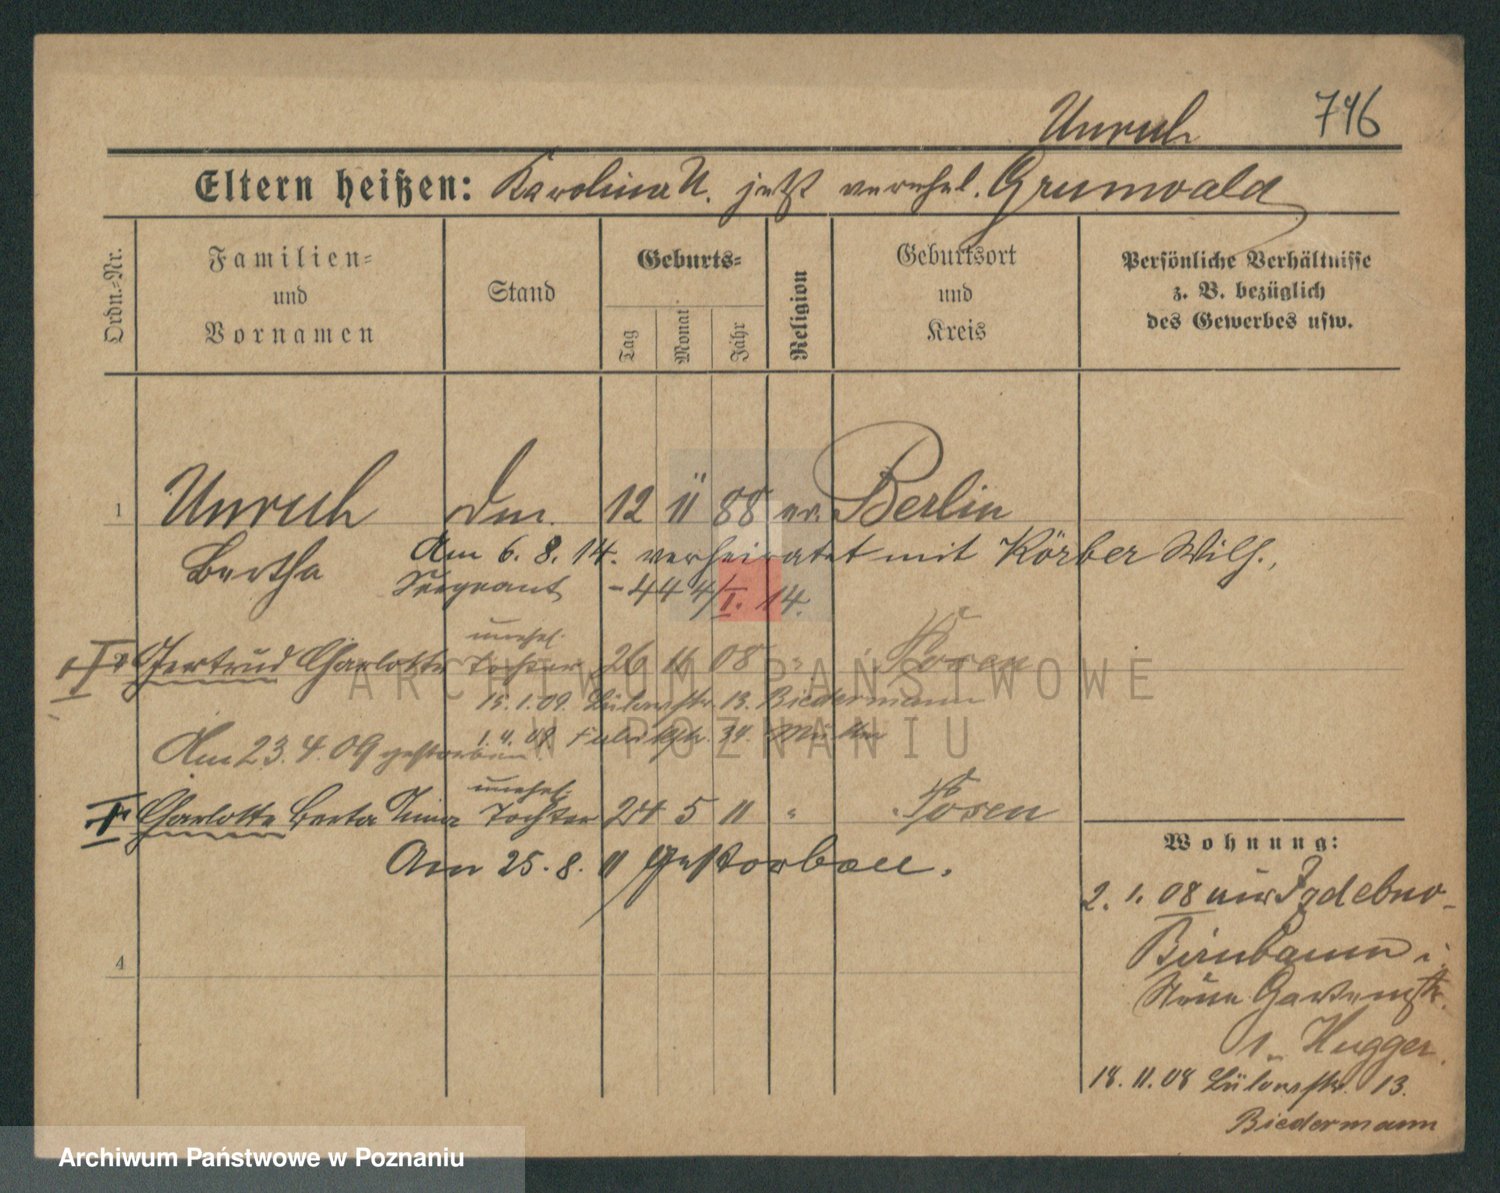 Unruh 746
Eltern heißen: Karolina U. jetzt verehel. Grunwald
Ordn.-Nr.
Familien-
und
Vornamen
Stand
Geburts-
Tag
Monat
Jahr
Religion
Geburtsort
und
Kreis
Persönliche Verhältnisse
z. B. bezüglich
des Gewerbes usw.
1 Unruh 12 11 88 ev. Berlin
Bertha
Am 6. 8. 14. verheiratet mit Körber Wilh.,
Sergeant -44 4/I. 14.
unehel.
Gertrud Charlotte Tochter 26 11 08 " Posen
15. 1. 09. Lülowstr. 13. Biedermann
1. 4. 09 39.
Am 23. 4. 09 gestorben.
unehel.
† Charlotte Berta Tochter 24 5 11 " Posen
Am 25. 8. 11 gestorben.
4
Wohnung:
2. 1. 08 aus
Birnbaum i.
Neue Gartenstr.
1. Hugger.
18. 11. 08 Lülowstr. 13.
Biedermann
ARCHIWUM PAŃSTWOWE
W POZNANIU
Archiwum Państwowe w Poznaniu